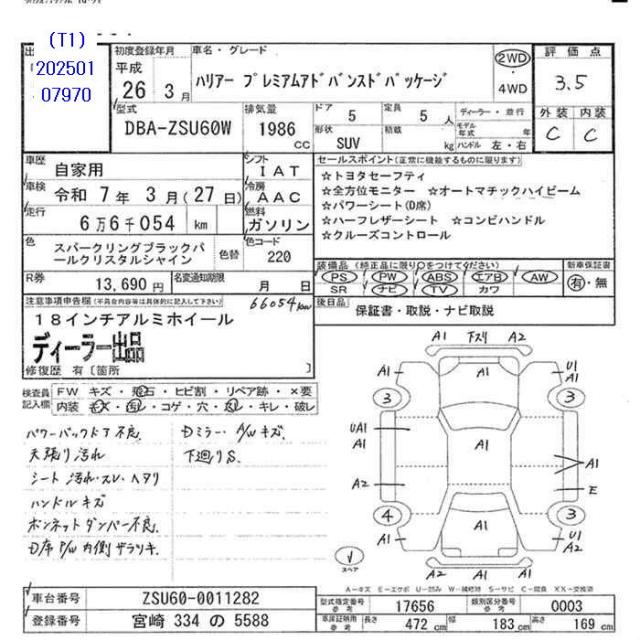 (T1)
202501
07970
初度登録年月
平成
26 3 月
車名・グレード
ハリアー プレミアムアドバンスドパッケージ
2WD
・
4WD
評価点
3.5
型式
DBA-ZSU60W
排気量
1986
CC
ドア
5
定員
5 人
形状
SUV
積載
kg
ディーラー・並行
モデル年式 年
ハンドル 左・右
外装 内装
C C
車歴
自家用
シフト
IAT
車検
令和 7年 3月(27日)
冷房
AAC
走行
6万6千054 km
燃料
ガソリン
色
スパークリングブラックパールクリスタルシャイン
色替
色コード
220
R券
13,690 円
名変通知期限
月 日
セールスポイント(正常に機能するものに限ります)
☆トヨタセーフティ
☆全方位モニター ☆オートマチックハイビーム
☆パワーシート(D席)
☆ハーフレザーシート ☆コンビハンドル
☆クルーズコントロール
装備品(純正品に限り○をつけてください)
PS PW ABS エアB AW
SR ナビ TV カワ
新車保証書
有・無
後日品
保証書・取説・ナビ取説
注意事項申告欄(不具合内容等は具体的に記入して下さい)
66054km
18インチアルミホイール
ディーラー出品
修復歴 有〔箇所 〕
検査員記入欄
FW キズ・飛石・ヒビ割・リペア跡・×要
内装 キズ・汚れ・コゲ・穴・スレ・キレ・破レ
パワーバックドア不良
天張り汚れ
シート汚れ・スレ・ヘタリ
ハンドルキズ
ボンネットダンパー不良
D席P/W内側ザラツキ
Dミラー・A/Wキズ
下廻りS
A1 下スリ A2
A1 A1 U1
A1
3 3
UA1
A1
A1
A1
A2 E
4 A1 3
A1 U1
A2
スペア
A1 A2
A−キズ E−エクボ U−凹み W−補修跡 S−サビ C−腐食 XX−交換済
車台番号
ZSU60-0011282
登録番号
宮崎 334 の 5588
型式指定番号
参考
17656
類別区分番号
参考
0003
車検証明用
参考
長さ 472 cm 幅 183 cm 高さ 169 cm